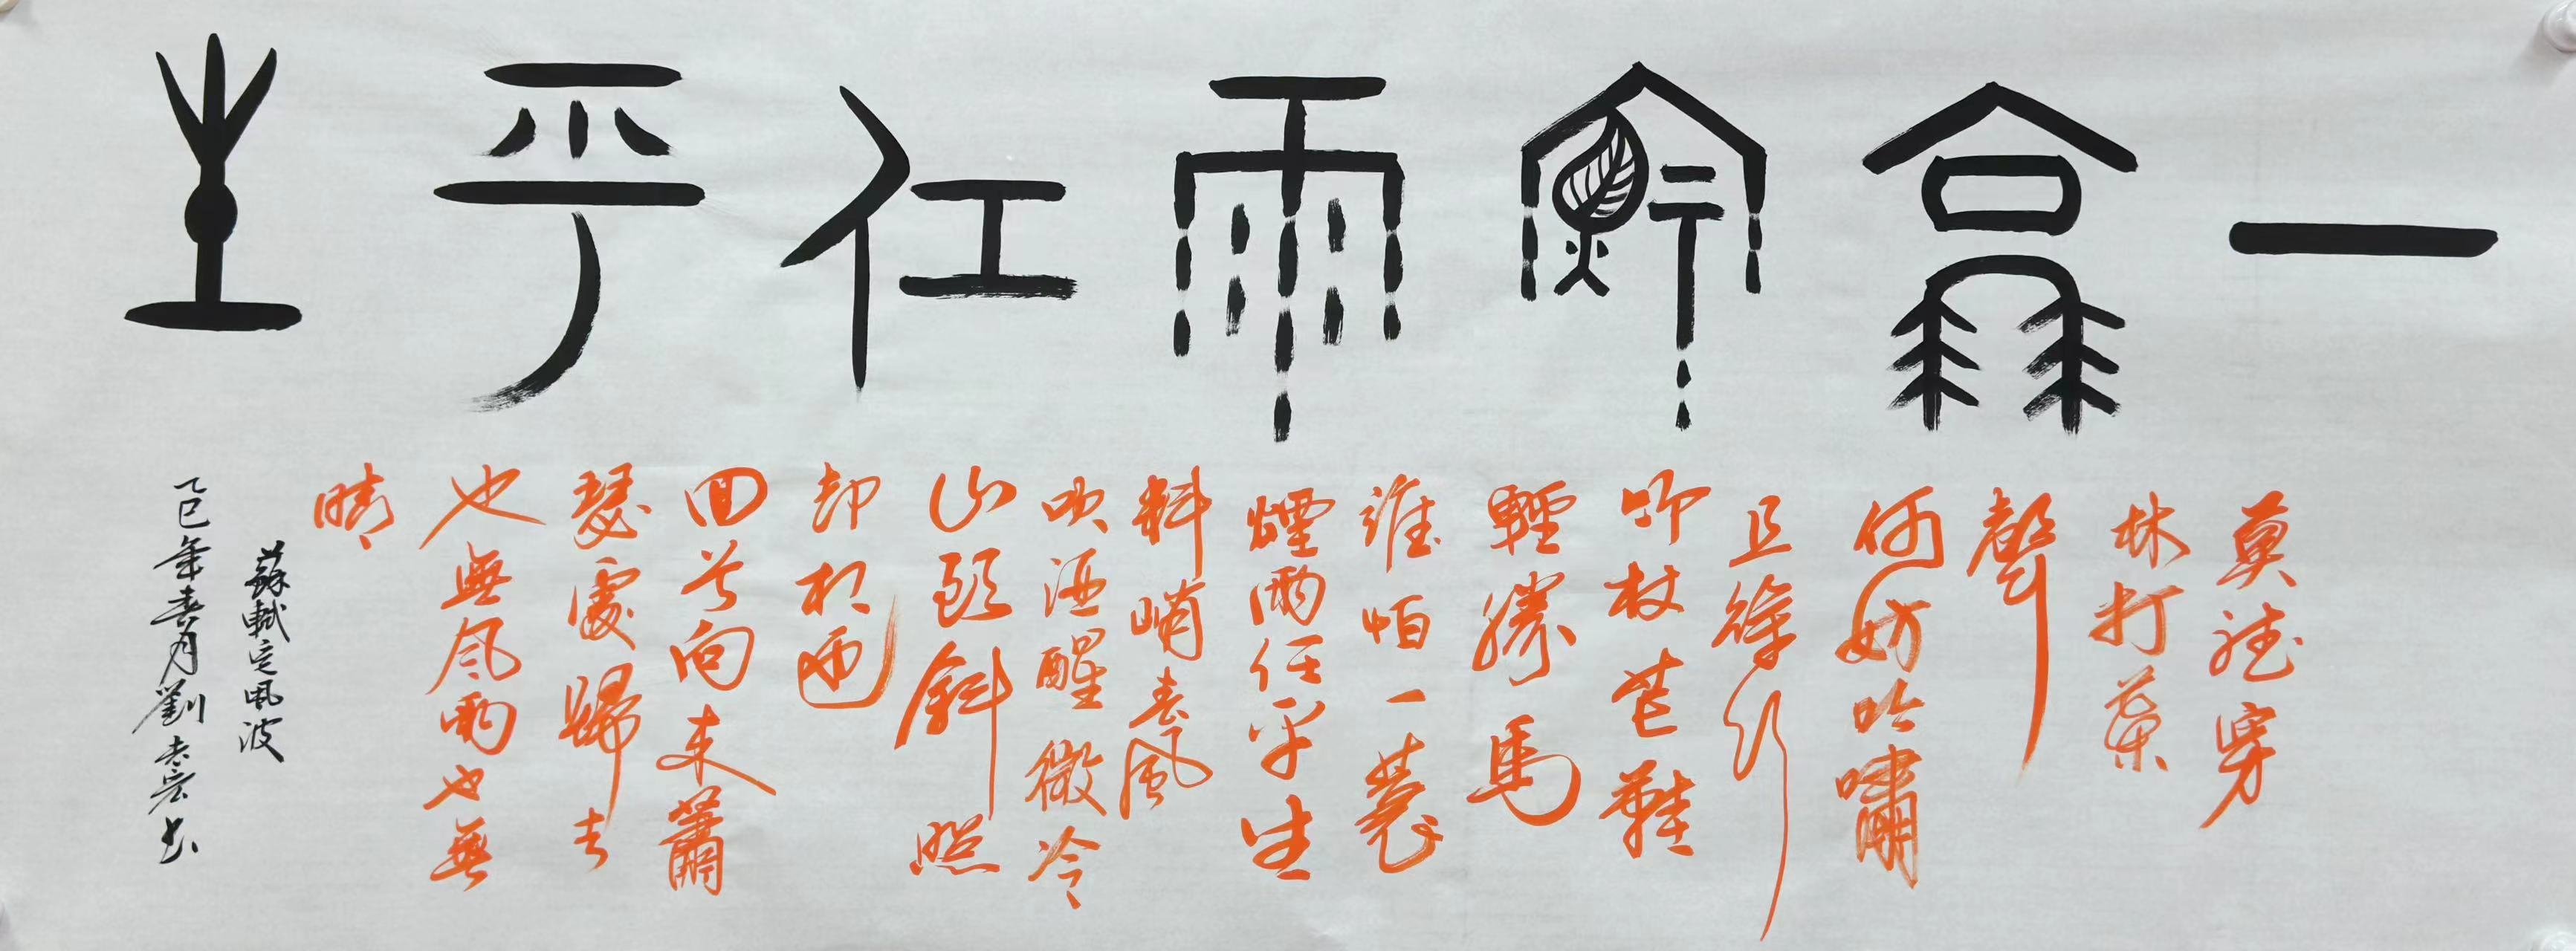 一蓑烟雨任平生
莫聽穿
林打葉
聲
何妨吟嘯
且徐行
竹杖芒鞋
輕勝馬
誰怕一蓑
煙雨任平生
料峭春風
吹酒醒微冷
山頭斜照
却相迎
回首向來蕭
瑟處歸去
也無风雨也無
晴
蘇軾定風波
乙巳年春月劉志宏书